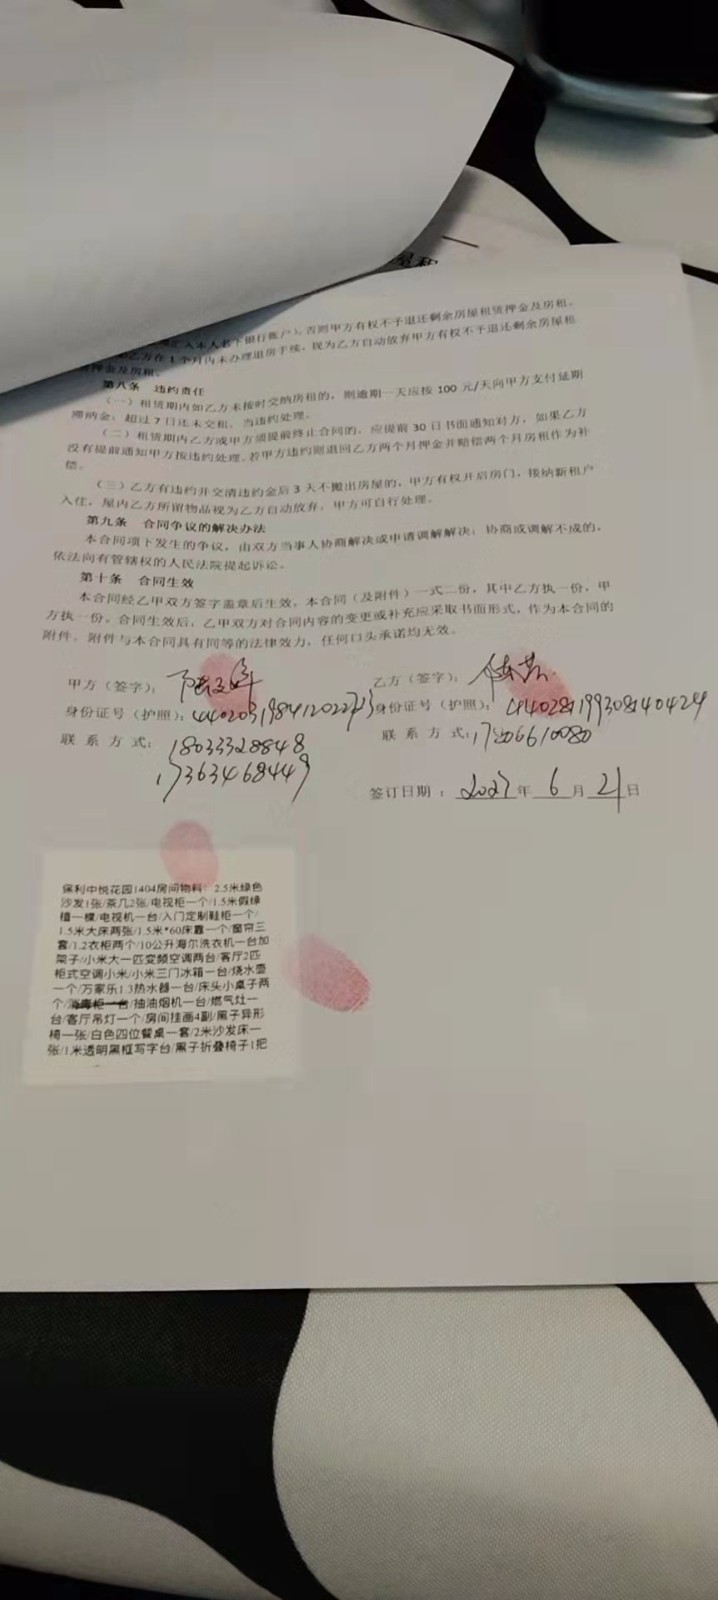 屋租
汇入本人名下银行账户），否则甲方有权不予退还剩余房屋租赁押金及房租。
乙方在1个月内未办理退房手续，视为乙方自动放弃甲方有权不予退还剩余房屋租
押金及房租。
第八条 违约责任
（一）租赁期内如乙方未按时交纳房租的，则逾期一天应按100元/天向甲方支付延期
滞纳金，超过7日还未交租，当违约处理。
（二）租赁期内乙方或甲方须提前终止合同的，应提前30日书面通知对方，如果乙方
没有提前通知甲方按违约处理。若甲方违约则退回乙方两个月押金并赔偿两个月房租作为补
偿。
（三）乙方有违约并交清违约金后3天不搬出房屋的，甲方有权开启房门，接纳新租户
入住，屋内乙方所留物品视为乙方自动放弃，甲方可自行处理。
第九条 合同争议的解决办法
本合同项下发生的争议，由双方当事人协商解决或申请调解解决；协商或调解不成的，
依法向有管辖权的人民法院提起诉讼。
第十条 合同生效
本合同经乙甲双方签字盖章后生效，本合同（及附件）一式二份，其中乙方执一份，甲
方执一份。合同生效后，乙甲双方对合同内容的变更或补充应采取书面形式，作为本合同的
附件。附件与本合同具有同等的法律效力，任何口头承诺均无效。
甲方（签字）： 乙方（签字）：
身份证号（护照）： 身份证号（护照）：
联系方式：18033328848 联系方式：17806610080
17363468449
签订日期：年 6 月 21 日
保利中悦花园1404房间物料：2.5米绿色
沙发1张/茶几2张/电视柜一个/1.5米假绿
植一棵/电视机一台/入门定制鞋柜一个/
1.5米大床两张/1.5米*60床靠一个/窗帘三
套/1.2衣柜两个/10公升海尔洗衣机一台加
架子/小米大一匹变频空调两台/客厅2匹
柜式空调小米/小米三门冰箱一台/烧水壶
一个/万家乐1.3热水器一台/床头小桌子两
个/消毒柜一台/抽油烟机一台/燃气灶一
台/客厅吊灯一个/房间挂画4副/黑子异形
椅一张/白色四位餐桌一套/2米沙发床一
张/1米透明黑框写字台/黑子折叠椅子1把